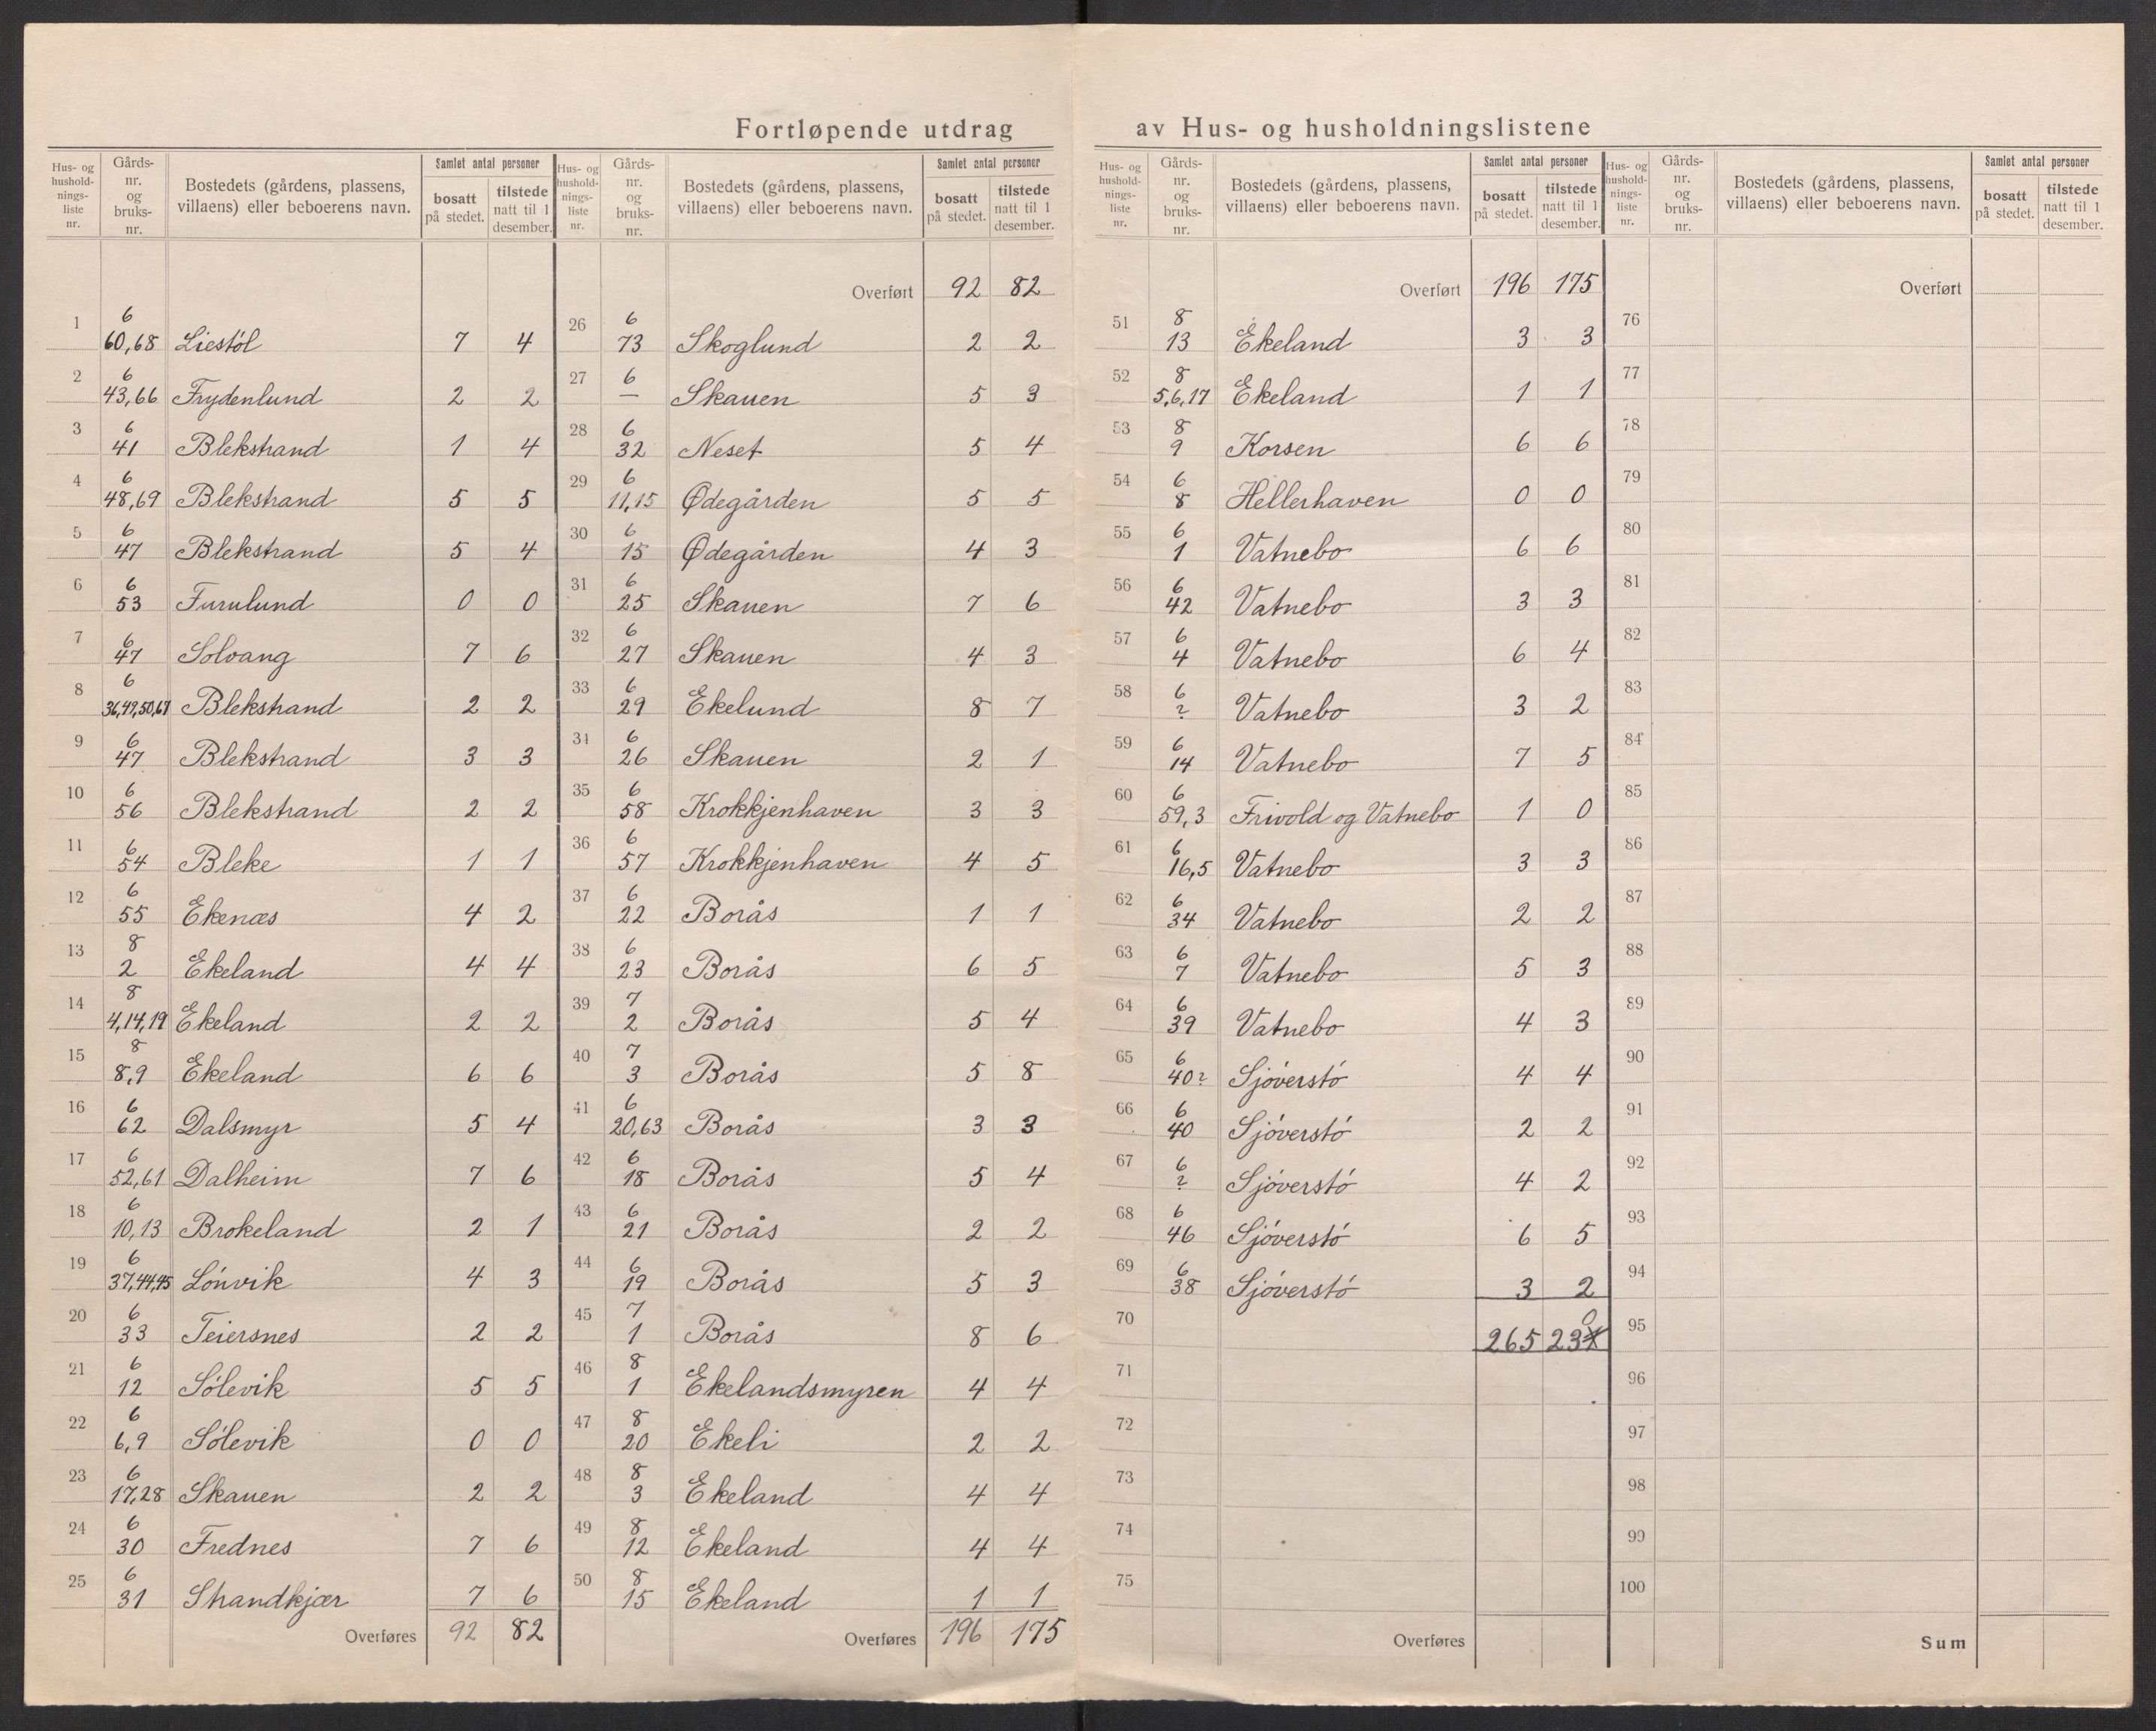 Fortløpende utdrag av Hus- og husholdningslistene
Hus- og husholdnings-liste nr. | Gårds-nr. og bruks-nr. | Bostedets (gårdens, plassens, villaens) eller beboerens navn. | Samlet antal personer bosatt på stedet. | tilstede natt til 1 desember.
1 | 6 60,68 | Liestøl | 7 | 4
2 | 6 43,66 | Frydenlund | 2 | 2
3 | 6 41 | Blekstrand | 1 | 4
4 | 6 48,69 | Blekstrand | 5 | 5
5 | 6 47 | Blekstrand | 5 | 4
6 | 6 53 | Furulund | 0 | 0
7 | 6 47 | Solvang | 7 | 6
8 | 6 36,49,50,67 | Blekstrand | 2 | 2
9 | 6 47 | Blekstrand | 3 | 3
10 | 6 56 | Blekstrand | 2 | 2
11 | 6 54 | Bleke | 1 | 1
12 | 6 55 | Ekenæs | 4 | 2
13 | 8 2 | Ekeland | 4 | 4
14 | 8 4,14,19 | Ekeland | 2 | 2
15 | 8 8,9 | Ekeland | 6 | 6
16 | 6 62 | Dalsmyr | 5 | 4
17 | 6 52,61 | Dalheim | 7 | 6
18 | 6 10,13 | Brokeland | 2 | 1
19 | 6 37,44,45 | Lónvik | 4 | 3
20 | 6 33 | Teiersnes | 2 | 2
21 | 6 12 | Sólevik | 5 | 5
22 | 6 6,9 | Sólevik | 0 | 0
23 | 6 17,28 | Skauen | 2 | 2
24 | 6 30 | Frednes | 7 | 6
25 | 6 31 | Strandkjær | 7 | 6
Overføres | 92 | 82
Hus- og husholdnings-liste nr. | Gårds-nr. og bruks-nr. | Bostedets (gårdens, plassens, villaens) eller beboerens navn. | Samlet antal personer bosatt på stedet. | tilstede natt til 1 desember.
Overført | 92 | 82
26 | 6 73 | Skoglund | 2 | 2
27 | 6 — | Skauen | 5 | 3
28 | 6 32 | Neset | 5 | 4
29 | 6 11,15 | Ødegården | 5 | 5
30 | 6 15 | Ødegården | 4 | 3
31 | 6 25 | Skauen | 7 | 6
32 | 6 27 | Skauen | 4 | 3
33 | 6 29 | Ekelund | 8 | 7
34 | 6 26 | Skauen | 2 | 1
35 | 6 58 | Krokkjenhaven | 3 | 3
36 | 6 57 | Krokkjenhaven | 4 | 5
37 | 6 22 | Borås | 1 | 1
38 | 6 23 | Borås | 6 | 5
39 | 7 2 | Borås | 5 | 4
40 | 7 3 | Borås | 5 | 8
41 | 6 20,63 | Borås | 3 | 3
42 | 6 18 | Borås | 5 | 4
43 | 6 21 | Borås | 2 | 2
44 | 6 19 | Borås | 5 | 3
45 | 7 1 | Borås | 8 | 6
46 | 8 1 | Ekelandsmyren | 4 | 4
47 | 8 20 | Ekeli | 2 | 2
48 | 8 3 | Ekeland | 4 | 4
49 | 8 12 | Ekeland | 4 | 4
50 | 8 15 | Ekeland | 1 | 1
Overføres | 196 | 175
Hus- og husholdnings-liste nr. | Gårds-nr. og bruks-nr. | Bostedets (gårdens, plassens, villaens) eller beboerens navn. | Samlet antal personer bosatt på stedet. | tilstede natt til 1 desember.
Overført | 196 | 175
51 | 8 13 | Ekeland | 3 | 3
52 | 8 5,6,17 | Ekeland | 1 | 1
53 | 8 9 | Korsen | 6 | 6
54 | 6 8 | Hellerhaven | 0 | 0
55 | 6 1 | Vatnebo | 6 | 6
56 | 6 42 | Vatnebo | 3 | 3
57 | 6 4 | Vatnebo | 6 | 4
58 | 6 ? | Vatnebo | 3 | 2
59 | 6 14 | Vatnebo | 7 | 5
60 | 6 59,3 | Frivold og Vatnebo | 1 | 0
61 | 6 16,5 | Vatnebo | 3 | 3
62 | 6 34 | Vatnebo | 2 | 2
63 | 6 7 | Vatnebo | 5 | 3
64 | 6 39 | Vatnebo | 4 | 3
65 | 6 40? | Sjóverstó | 4 | 4
66 | 6 40 | Sjóverstó | 2 | 2
67 | 6 ? | Sjóverstó | 4 | 2
68 | 6 46 | Sjóverstó | 6 | 5
69 | 6 38 | Sjóverstó | 3 | 2
70 | 265 | 230
71
72
73
74
75
Overføres
Hus- og husholdnings-liste nr. | Gårds-nr. og bruks-nr. | Bostedets (gårdens, plassens, villaens) eller beboerens navn. | Samlet antal personer bosatt på stedet. | tilstede natt til 1 desember.
Overført
76
77
78
79
80
81
82
83
84
85
86
87
88
89
90
91
92
93
94
95
96
97
98
99
100
Sum